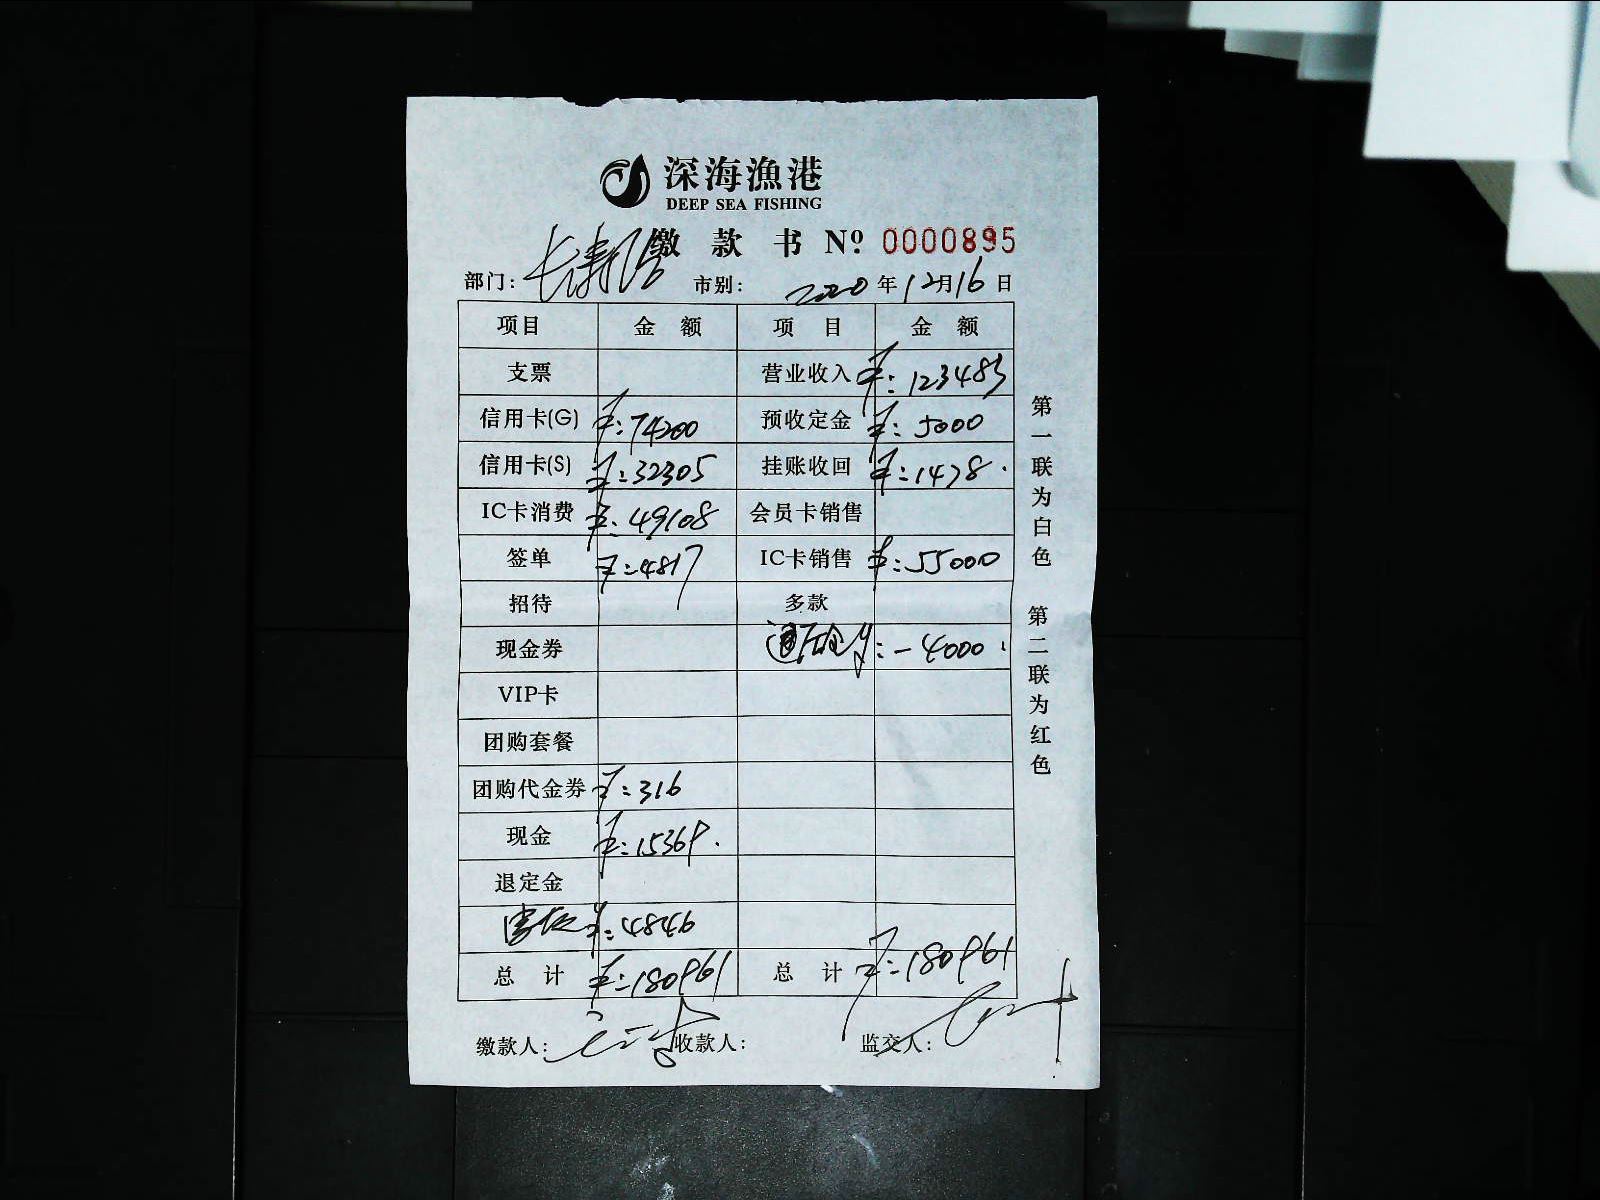 深海渔港
DEEP SEA FISHING
缴款书 Nº 0000895
部门: 长寿 市别: 2020年12月16日
项目 金额 项目 金额
支票 营业收入 ¥:123483
信用卡(G) ¥:74200 预收定金 ¥:5000
信用卡(S) ¥:32305 挂账收回 ¥:1478.
IC卡消费 ¥:49108 会员卡销售
签单 ¥:4817 IC卡销售 ¥:55000
招待 多款
现金券 ¥:-4000.
VIP卡
团购套餐
团购代金券 ¥:316
现金 ¥:15369.
退定金
¥:4846
总计 ¥:180961 总计 ¥:180961
缴款人: 收款人: 监交人:
第一联为白色 第二联为红色